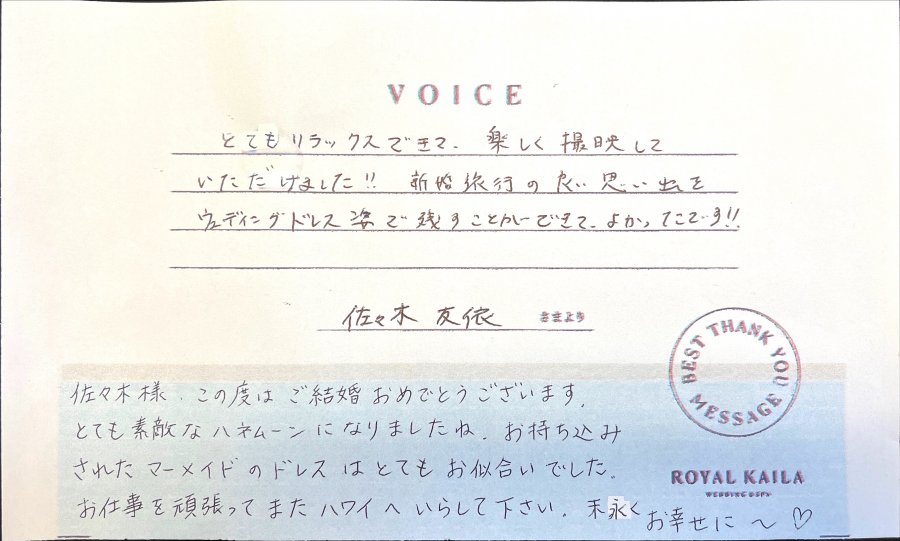 VOICE
とてもリラックスできて、楽しく撮映して
いただけました!! 新婚旅行の良い思い出を
ウェディングドレス姿で残すことができて、よかったです!!
佐々木 友依 さまより
BEST THANK YOU MESSAGE
佐々木様、この度はご結婚おめでとうございます。
とても素敵なハネムーンになりましたね。お持ち込み
されたマーメイドのドレスはとてもお似合いでした。
お仕事を頑張ってまたハワイへいらして下さい。末永く
お幸せに〜♡
ROYAL KAILA